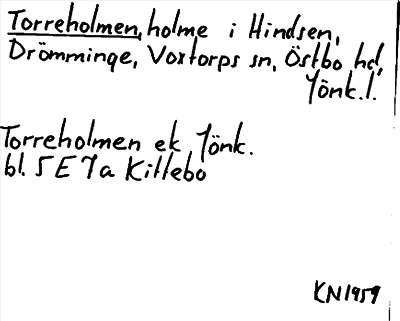 Torreholmen, holme i Hindsen,
Drömminge, Voxtorps sn, Östbo hd,
Jönk.l.
Torreholmen ek Jönk.
bl. 5 E 7a Killebo
KN1959